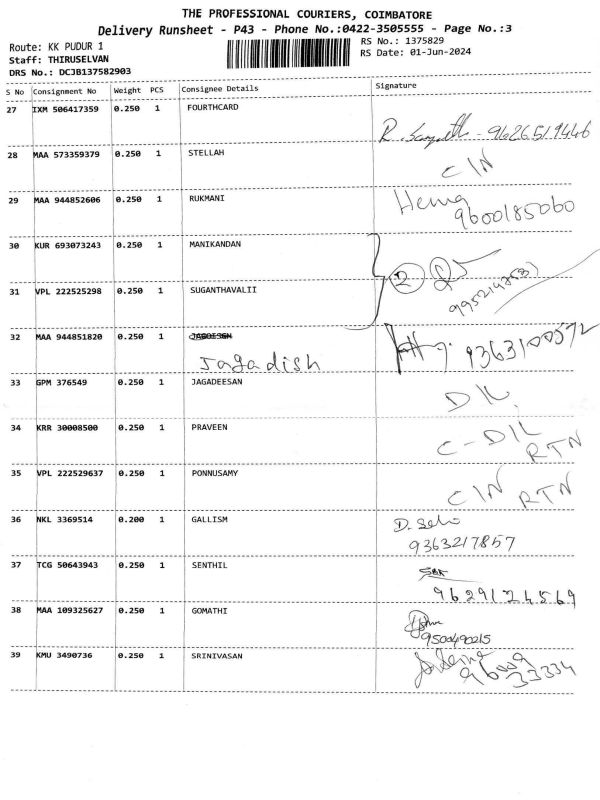 THE PROFESSIONAL COURIERS, COIMBATORE
Delivery Runsheet - P43 - Phone No.:0422-3505555 - Page No.:3
Route: KK PUDUR 1
RS No.: 1375829
Staff: THIRUSELVAN
RS Date: 01-Jun-2024
DRS No.: DCJB137582903
S No Consignment No Weight PCS Consignee Details Signature
27 IXM 506417359 0.250 1 FOURTHCARD
R. - 9626519446
28 MAA 573359379 0.250 1 STELLAH
CIN
29 MAA 944852606 0.250 1 RUKMANI
Hema
9600185060
30 KUR 693073243 0.250 1 MANIKANDAN
2
31 VPL 222525298 0.250 1 SUGANTHAVALII
32 MAA 944851820 0.250 1
Jagadish 9363100572
33 GPM 376549 0.250 1 JAGADEESAN
D/L
34 KRR 30008500 0.250 1 PRAVEEN
C-D/L
RTN
35 VPL 222529637 0.250 1 PONNUSAMY
CIN RTN
36 NKL 3369514 0.200 1 GALLISM
D. Selvi
9363217857
37 TCG 50643943 0.250 1 SENTHIL
9629124569
38 MAA 109325627 0.250 1 GOMATHI
9500490215
39 KMU 3490736 0.250 1 SRINIVASAN
96009
33334